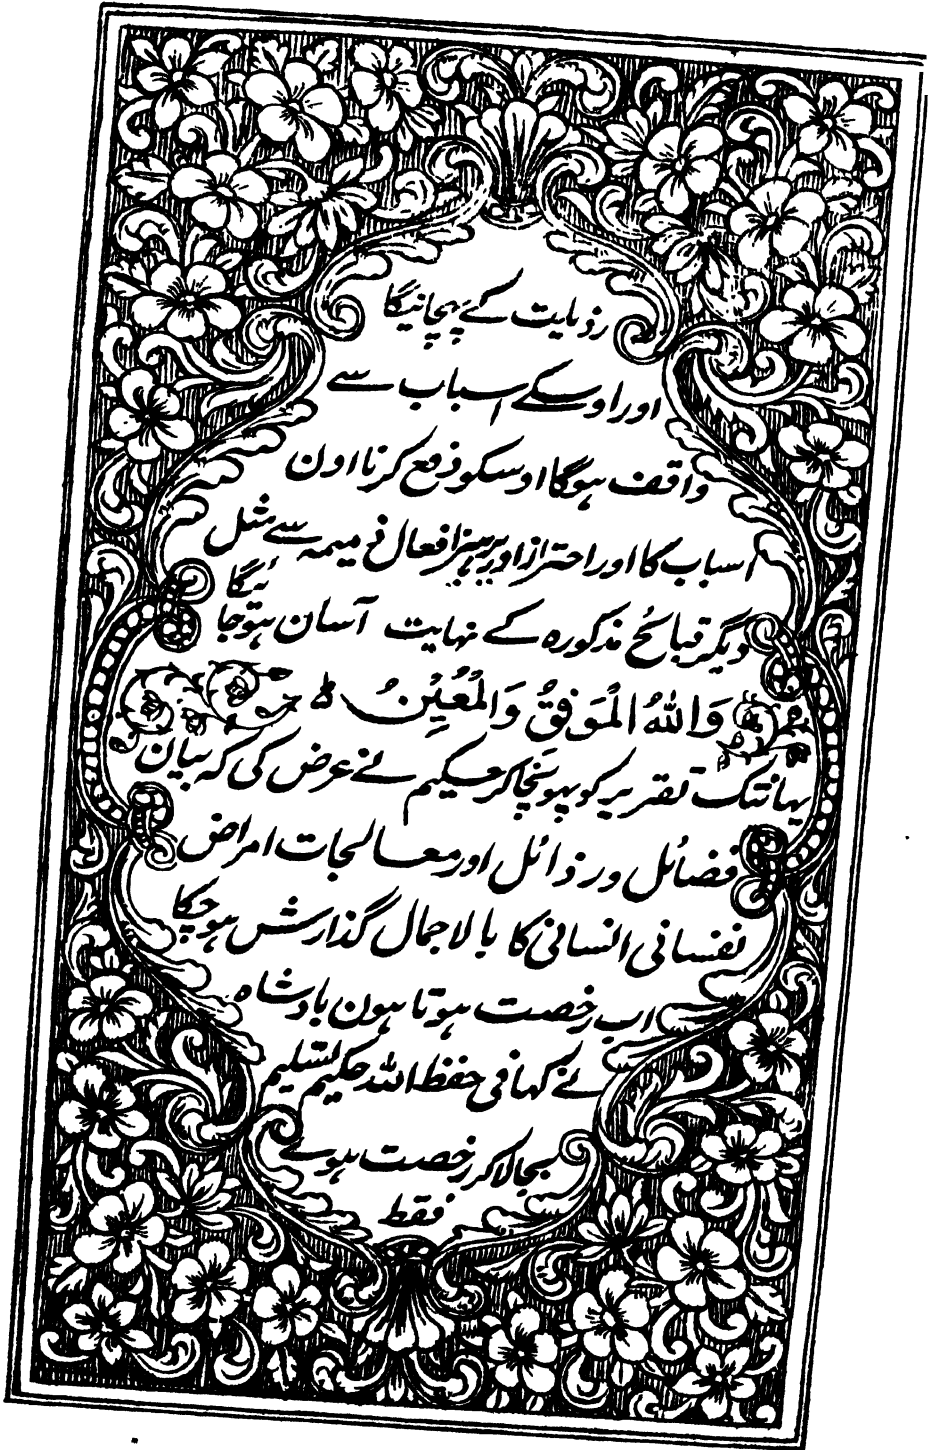 رذیلیت کے پہچانیگا
اور اوسکے اسباب سے
واقف ہوگا اوسکو دفع کرنا اون
اسباب کا اور احتراز اور پرہیز افعال ذمیمہ سے مثل
دیگر قبائح مذکورہ کے نہایت آسان ہوتو جائیگا
وَاللہُ الْمُوَفِّقُ وَالْمُعِیْنُ ؕ
یہانتک تقریر کو پہونچا کر حکیم نے عرض کی کہ بیان
فضائل و رذائل اور معالجات امراض
نفسانی انسانی کا بالاجمال گذارش ہوچکا
اب رخصت ہوتا ہون بادشاہ
نے کہا فی حفظ اللہ حکیم تسلیم
بجا لا کر رخصت ہوے
فقط